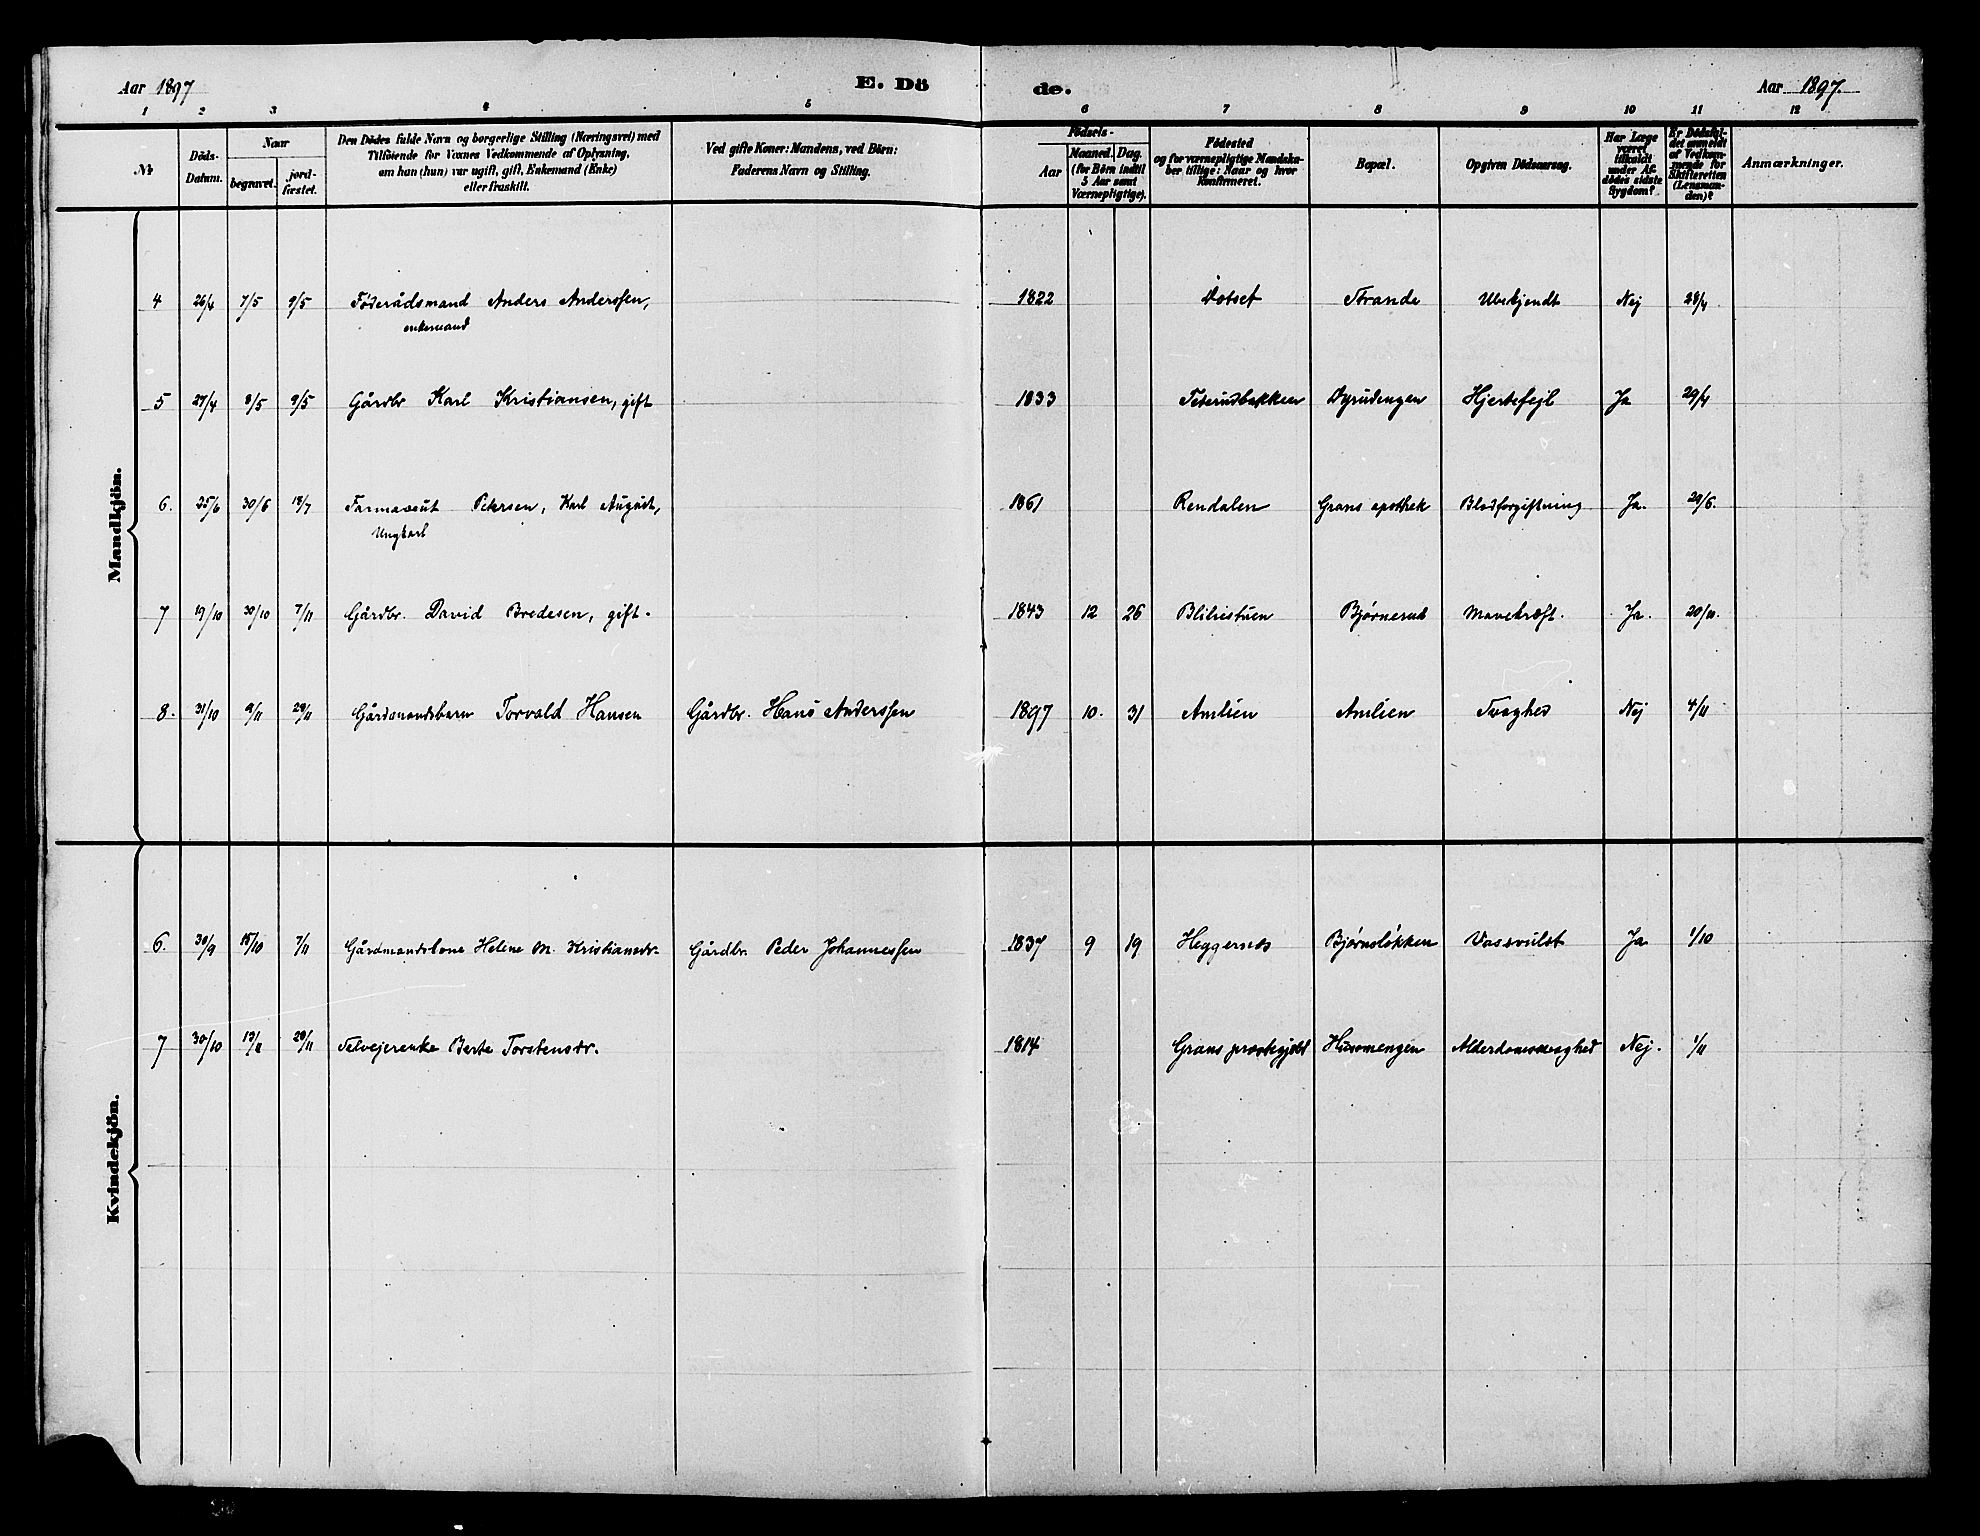 Aar 1897 E. Dö de. Aar 1897.
1 2 3 4 5 6 7 8 9 10 11 12
№ Döds-Datum. Naar begravet. jord-fæstet. Den Dödes fulde Navn og borgerlige Stilling (Næringsvei) med Tilföiende for Voxnes Vedkommende af Oplysning, om han (hun) var ugift, gift, Enkemand (Enke) eller fraskilt. Ved gifte Koner: Mandens, ved Börn: Faderens Navn og Stilling. Födsels- Aar Maaned. Dag. (for Börn indtil 5 Aar samt Værnepligtige). Födested og for værnepligtige Mandskaber tillige: Naar og hvor Konfirmeret. Bopæl. Opgiven Dödsaarsag. Har Læge været tilkaldt under Afdödes sidste Sygdom? Er Dödsfaldet anmeldt af Vedkommende for Skifteretten (Lensmanden)? Anmærkninger.
Mandkjön.
4 26/4 7/5 9/5 Föderådsmand Anders Anderssen, 1822 Strande Ubekjendt Nej 28/4
enkemand
5 27/4 8/5 9/5 Gårdbr Karl Kristiansen, gift 1833 Teterudbakken Dyrudengen Hjertefejl Ja 29/4
6. 25/6 30/6 18/7 Farmaceut Petersen, Karl August, 1861 Rendalen Grans apothek Blodforgiftning Ja. 29/6.
Ungkarl
7 19/10 30/10 7/11 Gårdbr. David Bredesen, gift. 1843 12 26 Blilistuen Bjørnerud Mavekræft. Ja. 20/10.
8. 31/10 9/11 29/11 Gårdmandsbarn Torvald Hansen Gårdbr. Hans Anderssen 1897 10. 31 Amlien Amlien Svaghed Nej 4/11
Kvindekjön.
6. 30/9 15/10 7/11 Gårdmandskone Helene M. Kristiansdr. Gårdbr. Peder Johannessen 1837 9 19 Heggernes Bjørnsløkken Ja 1/10
7 30/10 13/11 29/11 Selvejerenke Berte Torstensdr. 1814 Grans prestegjeld Husomengen Alderdomssvaghed Nej. 1/11